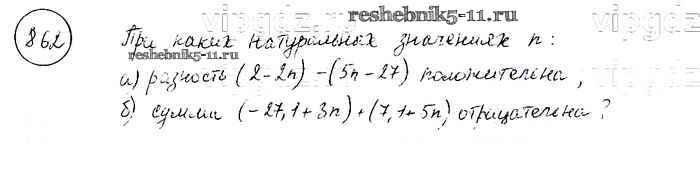 reshebnik5-11.ru
vipgdz
862 При каких натуральных значениях n:
reshebnik5-11.ru
а) разность (2-2n) - (5n-27) положительна,
б) сумма (-27,1+3n)+(7,1+5n) отрицательна?
reshebnik5-11.ru